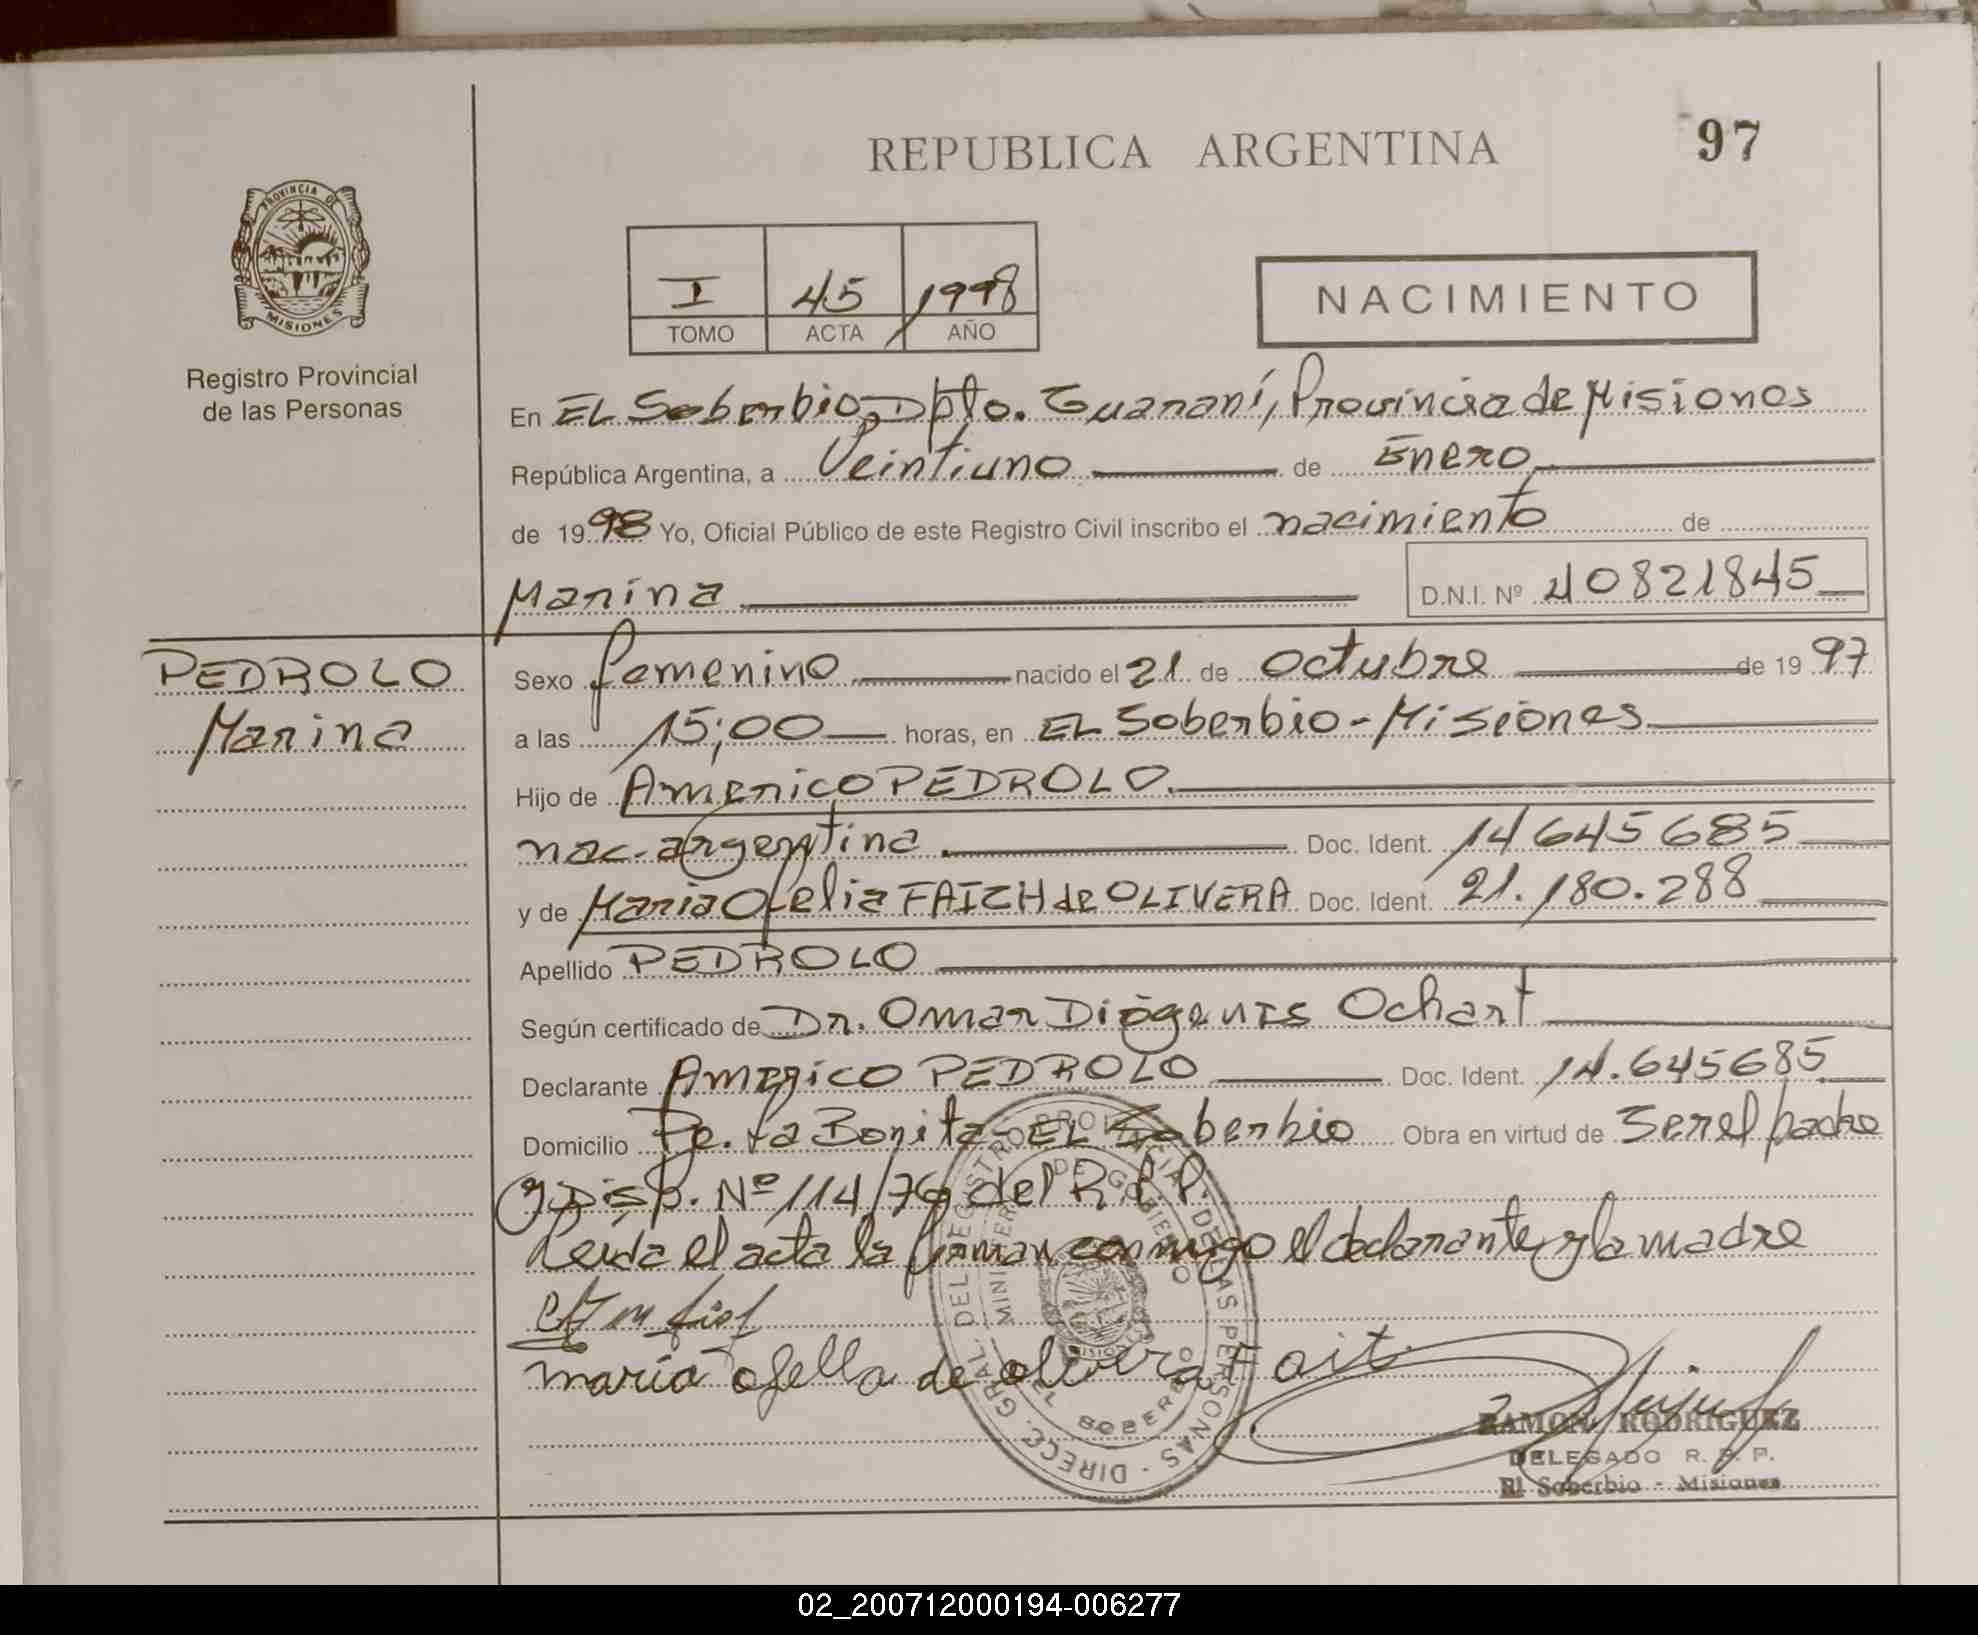 REPUBLICA ARGENTINA
97
PROVINCIA DE
MISIONES
Registro Provincial
de las Personas
I 45 1998
TOMO ACTA AÑO
NACIMIENTO
En EL Soberbio, Dpto. Guaraní, Provincia de Misiones
República Argentina, a Veintiuno de Enero
de 1998 Yo, Oficial Público de este Registro Civil inscribo el nacimiento de
Marina D.N.I. Nº 40821845
PEDROLO
Marina
Sexo femenino nacido el 21 de Octubre de 1997
a las 15;00 horas, en EL Soberbio - Misiones
Hijo de Americo PEDROLO
nac. argentina Doc. Ident. 14645685
y de Maria Ofelia FAICH de OLIVERA Doc. Ident. 21.180.288
Apellido PEDROLO
Según certificado de Dr. Omar Diógenes Ochart
Declarante Americo PEDROLO Doc. Ident. 14.645685
Domicilio Pe. La Bonita - EL Soberbio Obra en virtud de Ser el padre
y Disp. Nº 114/76 del R.P.P.
Leida el acta la firman conmigo el declarante y la madre
maria ofella de olivera Fait
DIRECC. GRAL. DEL REGISTRO PROVINCIAL DE LAS PERSONAS
MINISTERIO DE GOBIERNO
EL SOBERBIO
RAMON RODRIGUEZ
DELEGADO R. P. P.
El Soberbio - Misiones
02_200712000194-006277